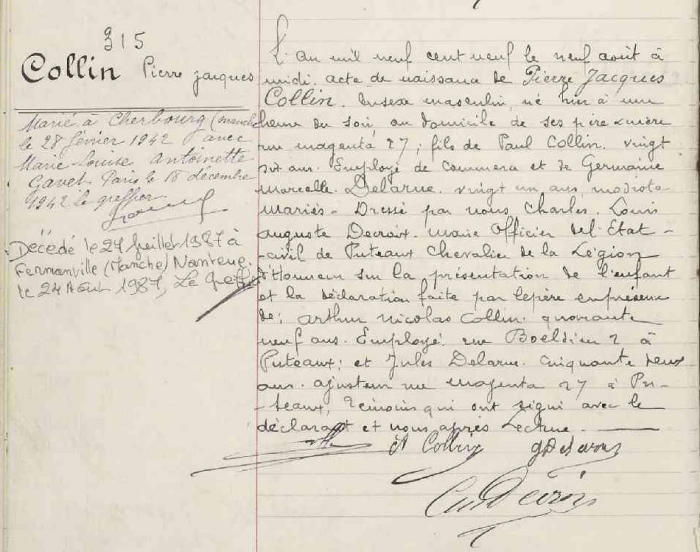 315
Collin Pierre Jacques
Marié à Cherbourg (manche
le 28 février 1942 avec
Marie Louise Antoinette
Gavet Paris le 18 décembre
1942 le greffier
Décédé le 24 juillet 1987 à
Fermanville (Manche) Nanterre,
le 24 Août 1987, Le Greffier
L'an mil neuf cent neuf le neuf août à
midi. acte de naissance de Pierre Jacques
Collin. du sexe masculin, né hier à une
heure du soir, au domicile de ses père et mère
rue magenta 27; fils de Paul Collin. vingt
ans. Employé de commerce et de Germaine
marcelle. Delarue. vingt un ans modiste
mariés. Dressé par nous, Charles. Louis
auguste Decroix. maire Officier de l'Etat-
-civil de Puteaux Chevalier de la Légion
d'Honneur sur la présentation de l'enfant
et la déclaration faite par le père en présence
de; arthur nicolas Collin. quarante
neuf ans. Employé. rue Boeldieu 2 à
Puteaux; et Jules Delarue. cinquante deux
ans. ajusteur rue magenta 27 à Pu-
-teaux, témoins qui ont signé avec le
déclarant et nous après Lecture.
A Collin